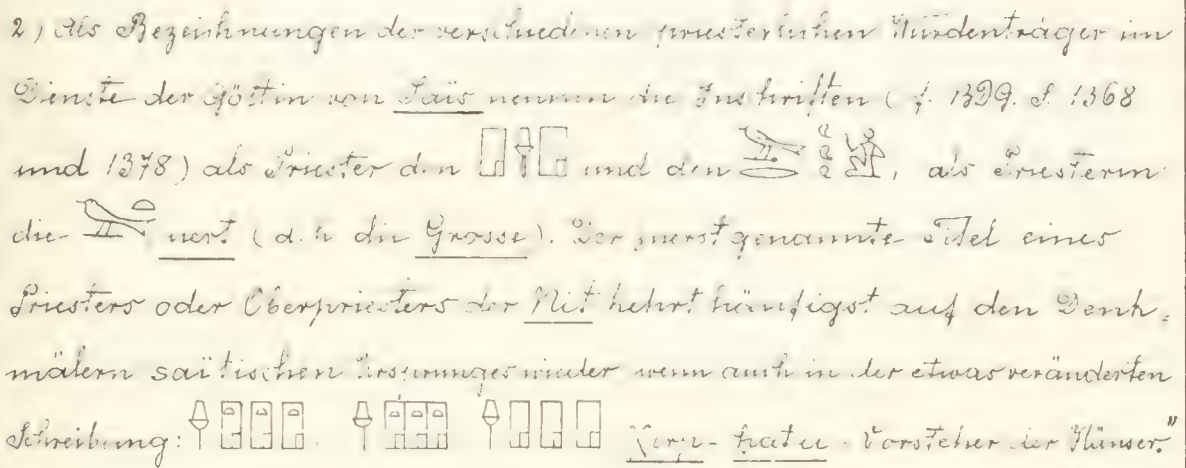 2) Als Bezeichnungen der verschiedenen priesterlichen Würdenträger im
Dienste der Göttin von Saïs nennen die Inschriften (cf. 1399. S. 1368
und 1378) als Priester den 𓉗𓌂𓉗 und den, als Priesterin
die uert (d. h. die Grosse). Der zuerst genannte Titel eines
Priesters oder Oberpriesters der Nit kehrt häufigst auf den Denk-
mälern saïtischen Ursprunges wieder wenn auch in der etwas veränderten
Schreibung: Xerp-hatu „Vorsteher der Häuser."